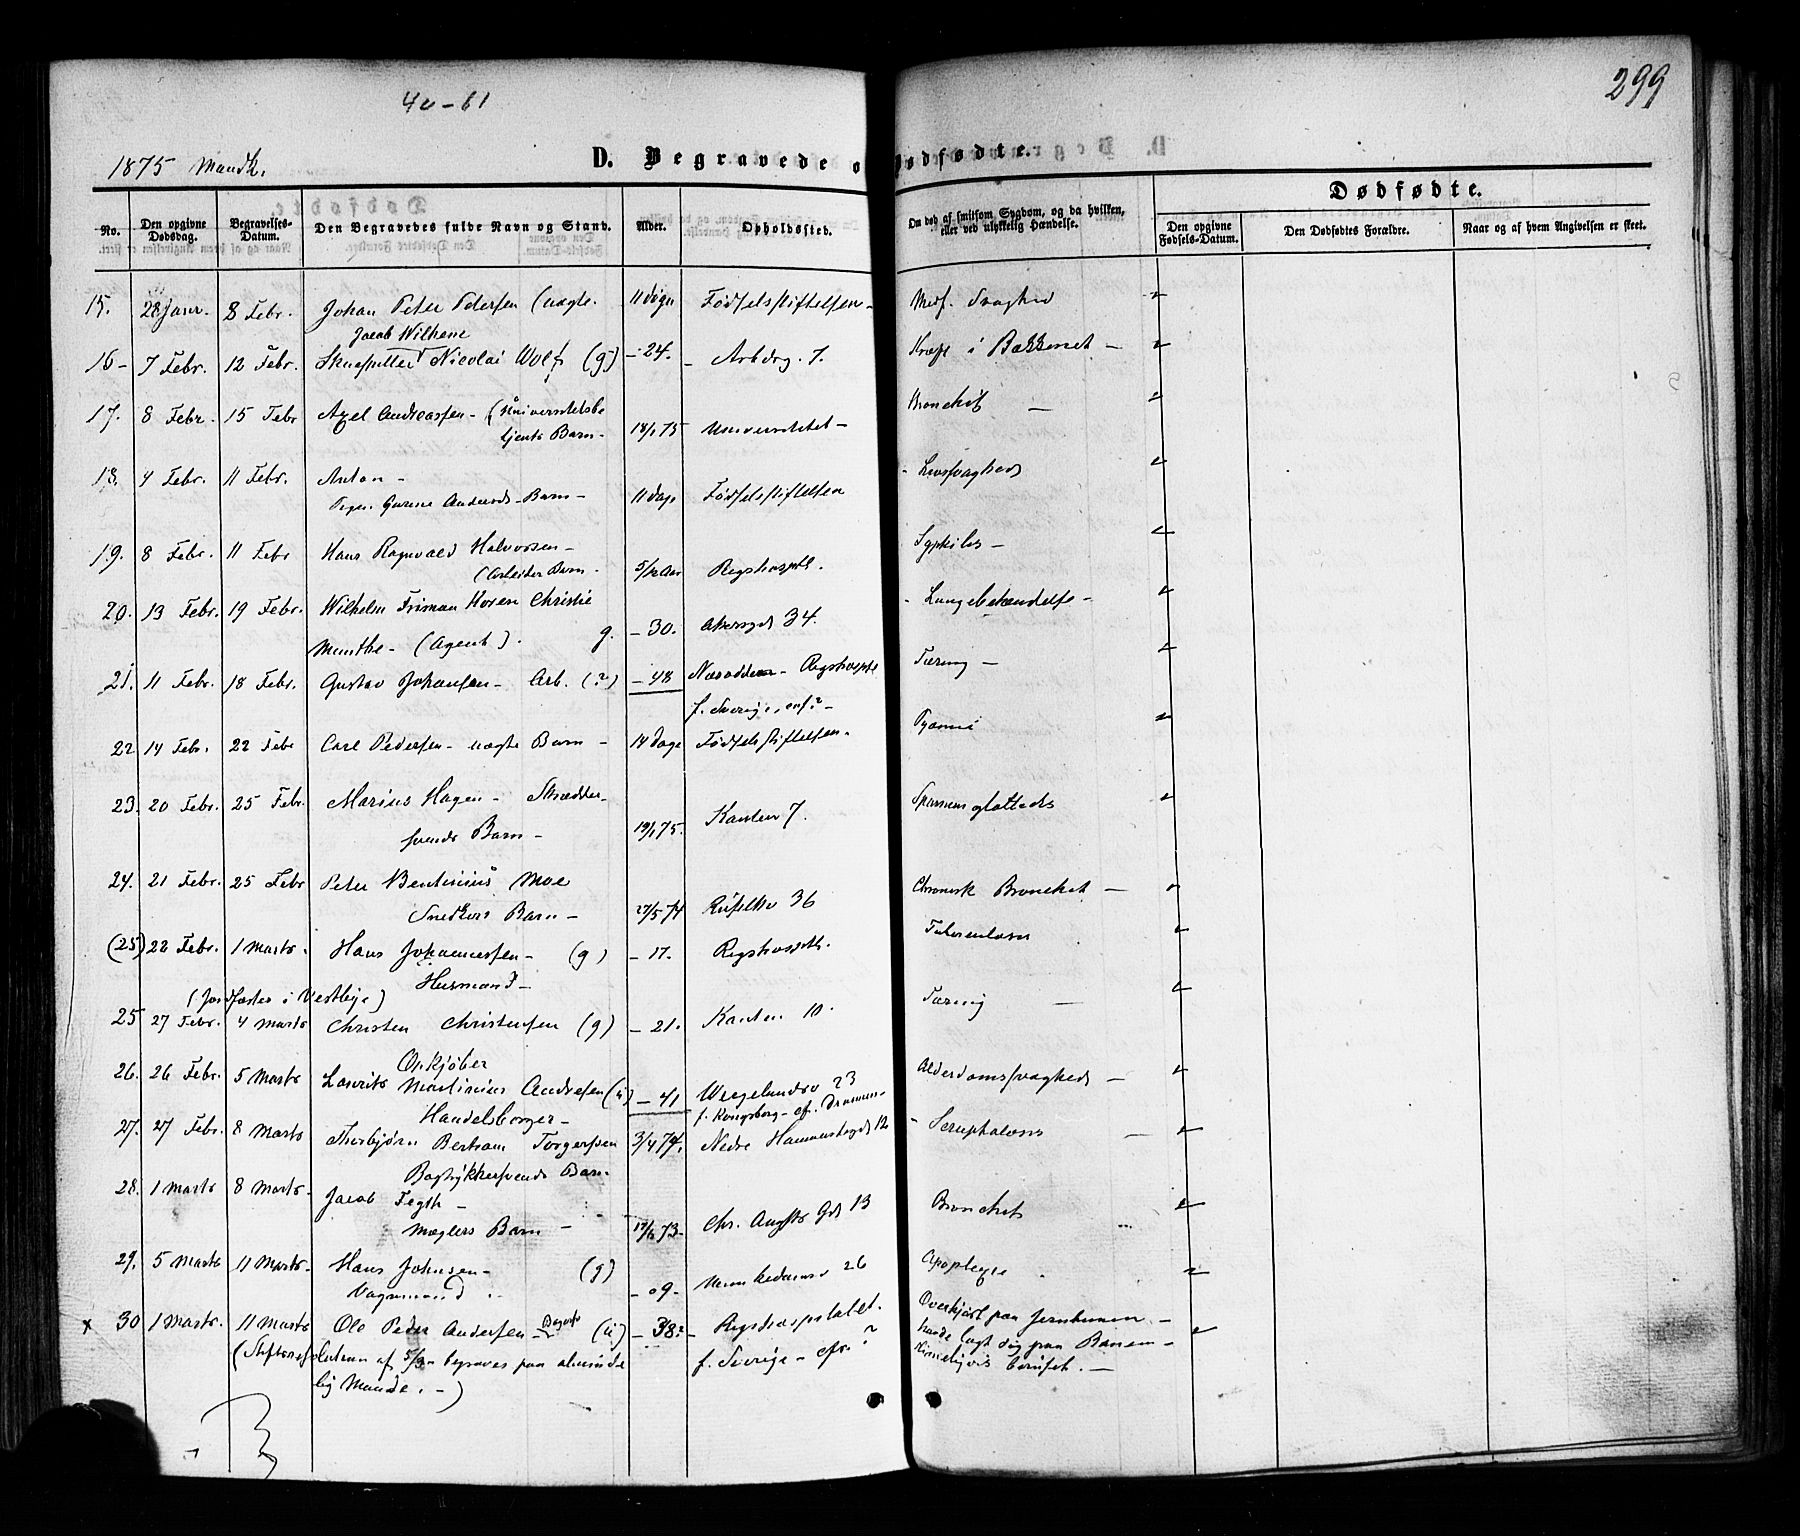 299
40-61
1875 Mandk.
D. Begravede o
Dødfødte.
No.
Den opgivne Dødsdag.
Begravelses-Datum.
Den Begravedes fulde Navn og Stand.
Alder.
Opholdssted.
Om død af smitsom Sygdom, og da hvilken, eller ved ulykkelig Hændelse.
Dødfødte.
Den opgivne Fødsels-Datum.
Den Dødfødtes Forældre.
Naar og af hvem Angivelsen er skeet.
15. 28 Janr. 8 Febr. Johan Peter Pedersen (uægte. 11 døgn Fødselsstiftelsen - Medf. Svaghed
Jacob Wilhelm
16 - 7 Febr. 12 Febr. Skuespiller Nicolai Wolf (g) - 24. - Arbdrg. 7. Kræft i Bækkenet -
17. 8 Febr. 15 Febr Axel Andreassen - (Universitetsbe
tjents Barn - 18/1 75 Universitetet - Bronchit -
18. 4 Febr. 11 Febr. Anton -
Pige. Gurine Anders - Barn - 11 dage Fødselsstiftelsen - Livssvaghed
19. 8 Febr. 11 Febr Hans Ragnvald Halvorsen -
(Arbeider Barn - 5/12 Aar Rigshospit. Syphilis -
20. 13 Febr. 19 Febr. Wilhelm Friman Koren Christie
Munthe - (Agent). g. - 30. Akersgd 34. - Lungebetændelse -
21. 11 Febr. 18 Febr. Gustav Johansen - Arb. (?) - 48 Næsodden - Rigshospit Tæring -
f. Sverige, enf? -
22 14 Febr. 22 Febr Carl Pedersen - uægte Barn - 14 dage Fødselsstiftelsen. Pyæmi
23. 20 Febr. 25 Febr. Marius Hagen - Skrædder-
svends Barn - 19/1 75. Kanten 7. Spasmus glottidis
24. 21 Febr. 25 Febr Peter Bentinius Moe
Snedkers Barn - 27/5 74 Rüseløkv 36 Chronisk Bronchit -
(25) 22 Febr. 1 Marts. Hans Johannessen - (g) - 17. Rigshospit. Tuberculose
Husmand -
(Jordfæstet i Vestbye)
25 27 Febr. 4 Marts Christen Christensen (g) - 21. Kanten 10. Tæring -
Opkjøber
26. 26 Febr. 5 Marts Lauritz Martinius Andresen (u) - 41 Wergelandsv 23 Alderdomssvaghed -
Handelsborger - f. Kongsberg - cf. Drammen -
27. 27 Febr. 8 Marts Thorbjørn Bertram Torgersen 3/4 74. Nedre Hammersbgd 12 - Scrophulose -
Bogtrykkersvends Barn -
28. 1 Marts 8 Marts. Jacob Fegth -
Mæglers Barn - 73 - Chr. Augsts Gd 13 Bronchit
29. 5 Marts 11 Marts - Hans Johnsen - (g) - 09 - Munkedamsv 26 Apoplexie
Vognmand
x 30 1 Marts. 11 Marts Ole Peder Andersen - (u) - 38? - Rigshospitalet. Overkjørt paa Jernbanen -
(Stiftsresolution af 5/3 begraves paa alminde f. Sverige - cfr. ? havde lagt sig paa Banen -
lig Maade. -) rimeligvis beruset. -